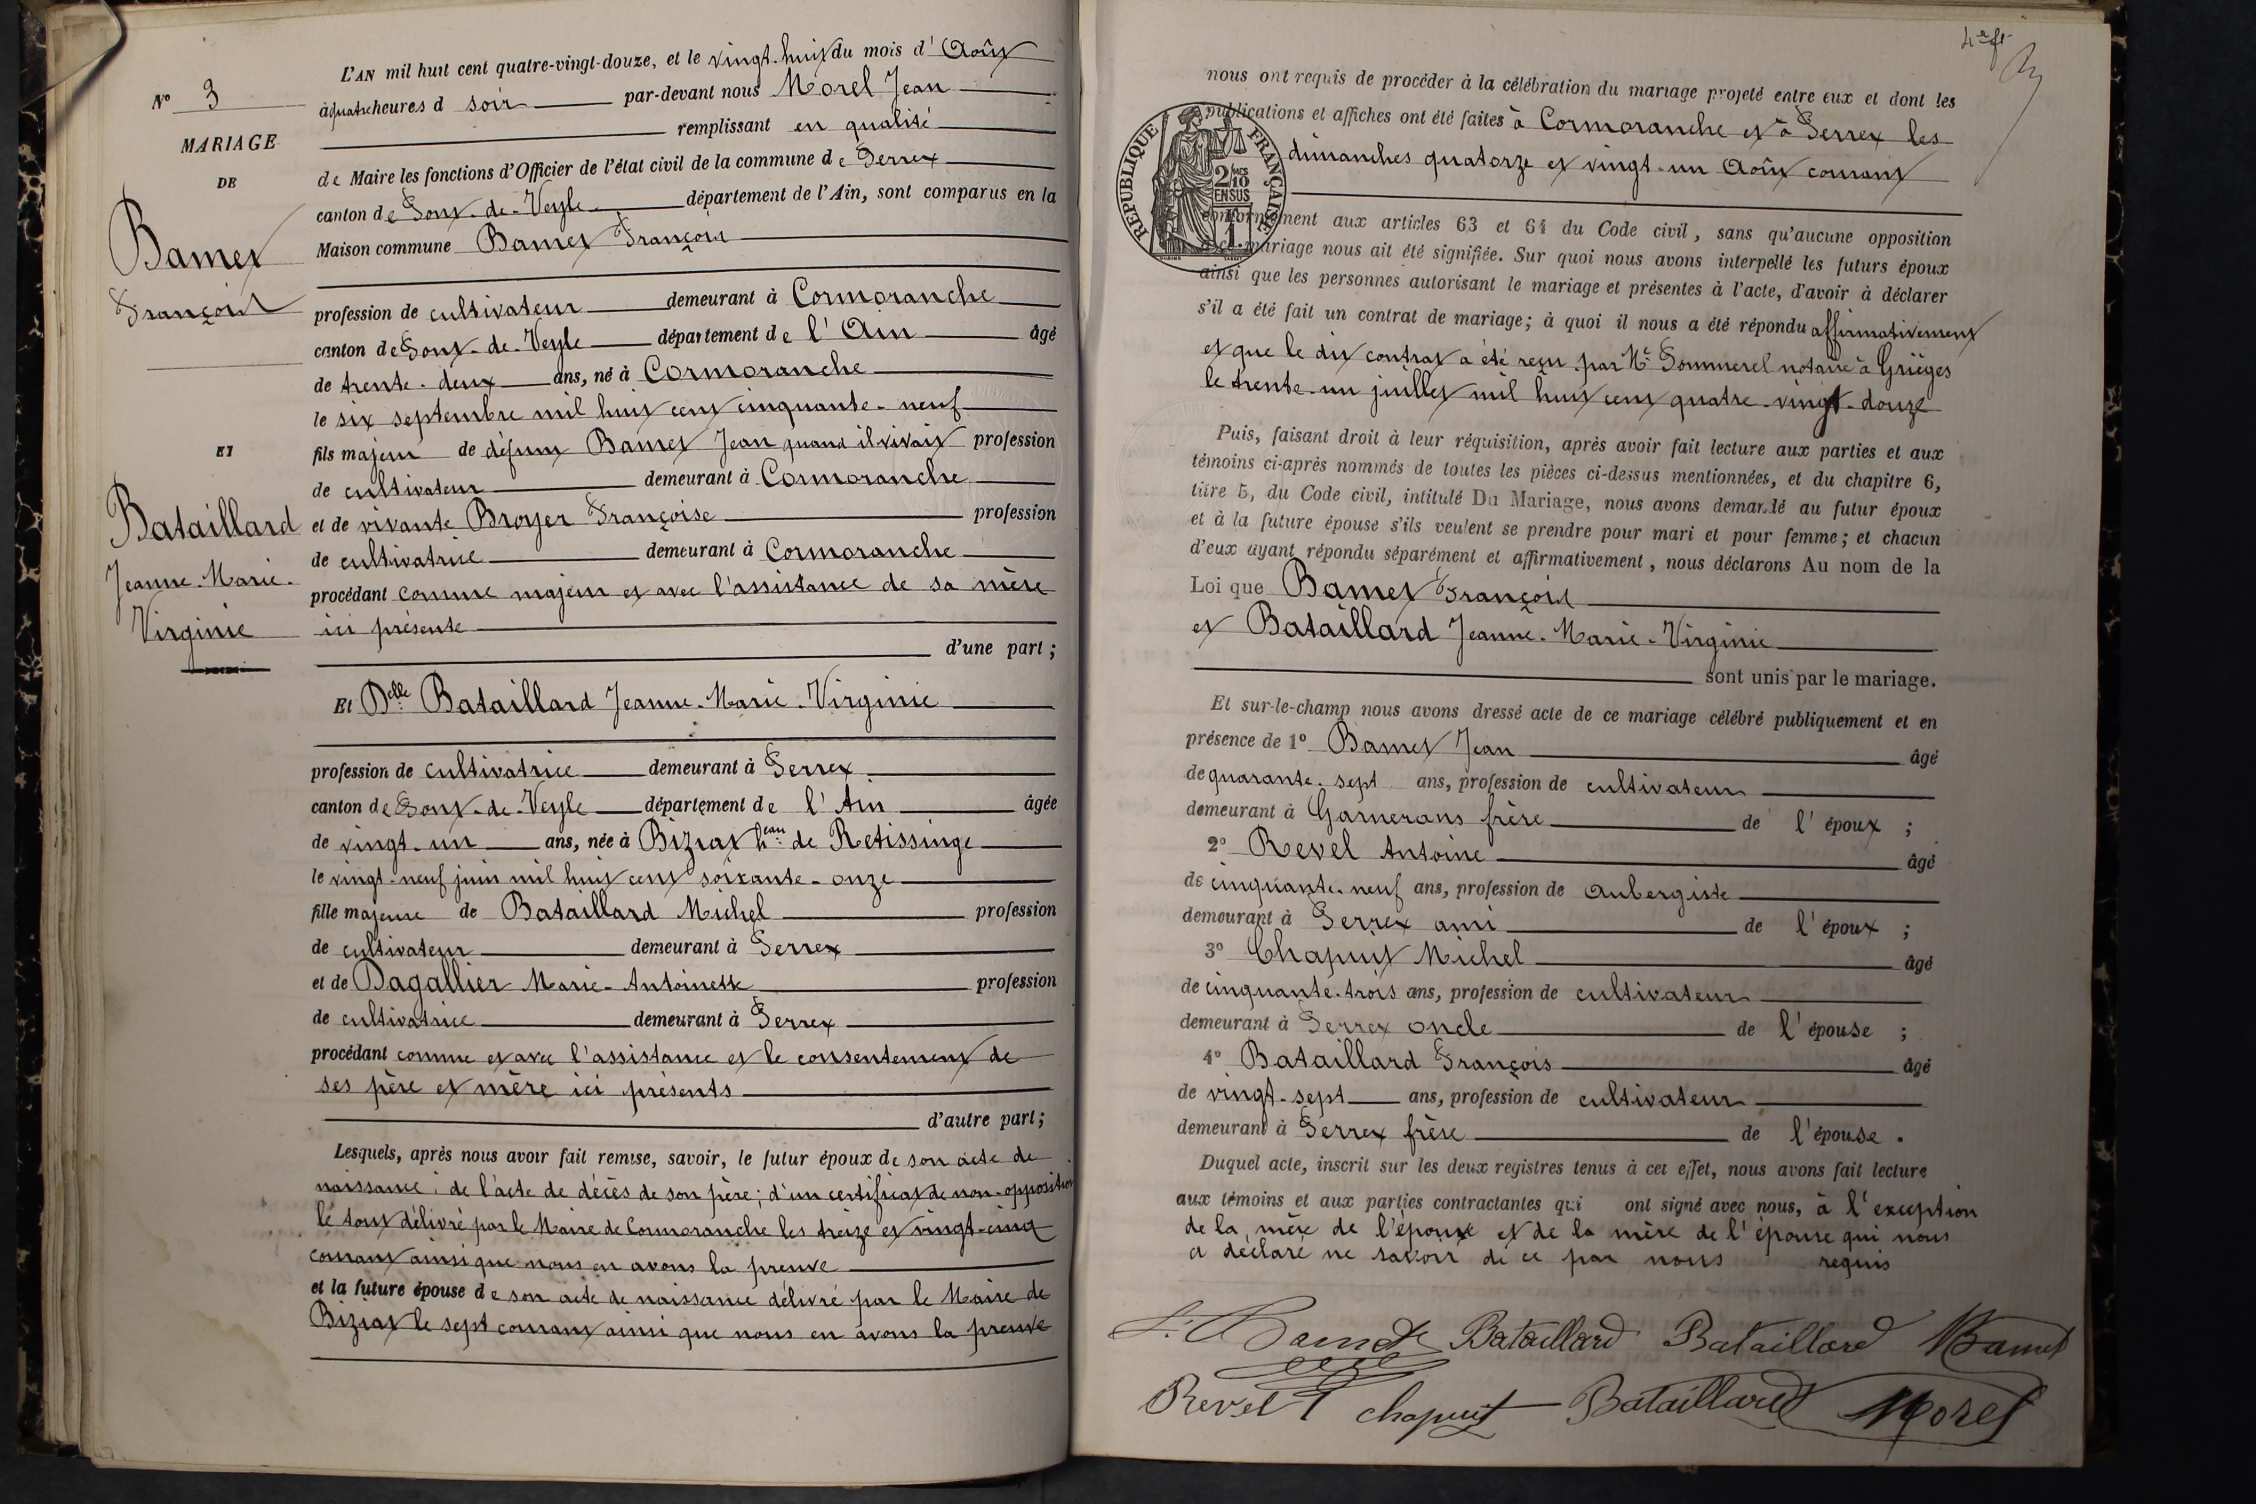 N° 3
MARIAGE
DE
Bamet
François
ET
Bataillard
Jeanne-Marie-
Virginie
L'AN mil huit cent quatre-vingt-douze, et le vingt-huit du mois d'Août
à quatre heures d soir par-devant nous Morel Jean
remplissant en qualité
de Maire les fonctions d'Officier de l'état civil de la commune de Perrex
canton de Pont-de-Veyle département de l'Ain, sont comparus en la
Maison commune Bamet François
profession de cultivateur demeurant à Cormoranche
canton de Pont-de-Veyle département de l'Ain âgé
de trente-deux ans, né à Cormoranche
le six septembre mil huit cent cinquante-neuf
fils majeur de défunt Bamet Jean quand il vivait profession
de cultivateur demeurant à Cormoranche
et de vivante Broyer Françoise profession
de cultivatrice demeurant à Cormoranche
procédant comme majeur et avec l'assistance de sa mère
ici présente
d'une part ;
Et Delle Bataillard Jeanne-Marie-Virginie
profession de cultivatrice demeurant à Perrex
canton de Pont-de-Veyle département de l'Ain âgée
de vingt-un ans, née à Biziat heau de Retissinge
le vingt-neuf juin mil huit cent soixante-onze
fille majeure de Bataillard Michel profession
de cultivateur demeurant à Perrex
et de Dagallier Marie-Antoinette profession
de cultivatrice demeurant à Perrex
procédant comme et avec l'assistance et le consentement de
ses père et mère ici présents
d'autre part ;
Lesquels, après nous avoir fait remise, savoir, le futur époux de son acte de
naissance ; de l'acte de décès de son père ; d'un certificat de non-opposition
le tout délivré par le Maire de Cormoranche les treize et vingt-cinq
courant ainsi que nous en avons la preuve
et la future épouse de son acte de naissance délivré par le Maire de
Biziat le sept courant ainsi que nous en avons la preuve
nous ont requis de procéder à la célébration du mariage projeté entre eux et dont les
publications et affiches ont été faites à Cormoranche et à Perrex les
dimanches quatorze et vingt-un Août courant
RÉPUBLIQUE FRANÇAISE
2/10 EN SUS
conformément aux articles 63 et 64 du Code civil, sans qu'aucune opposition
à ce mariage nous ait été signifiée. Sur quoi nous avons interpellé les futurs époux
ainsi que les personnes autorisant le mariage et présentes à l'acte, d'avoir à déclarer
s'il a été fait un contrat de mariage ; à quoi il nous a été répondu affirmativement
et que le dit contrat a été reçu par Me Pommerel notaire à Grièges
le trente-un juillet mil huit cent quatre-vingt-douze
Puis, faisant droit à leur réquisition, après avoir fait lecture aux parties et aux
témoins ci-après nommés de toutes les pièces ci-dessus mentionnées, et du chapitre 6,
titre 5, du Code civil, intitulé Du Mariage, nous avons demandé au futur époux
et à la future épouse s'ils veulent se prendre pour mari et pour femme ; et chacun
d'eux ayant répondu séparément et affirmativement, nous déclarons Au nom de la
Loi que Bamet François
et Bataillard Jeanne-Marie-Virginie
sont unis par le mariage.
Et sur-le-champ nous avons dressé acte de ce mariage célébré publiquement et en
présence de 1° Bamet Jean âgé
de quarante-sept ans, profession de cultivateur
demeurant à Garnerans frère de l'époux ;
2° Revel Antoine âgé
de cinquante-neuf ans, profession de aubergiste
demeurant à Perrex ami de l'époux ;
3° Chapuit Michel âgé
de cinquante-trois ans, profession de cultivateur
demeurant à Perrex oncle de l'épouse ;
4° Bataillard François âgé
de vingt-sept ans, profession de cultivateur
demeurant à Perrex frère de l'épouse.
Duquel acte, inscrit sur les deux registres tenus à cet effet, nous avons fait lecture
aux témoins et aux parties contractantes qui ont signé avec nous, à l'exception
de la mère de l'époux et de la mère de l'épouse qui nous
a déclaré ne savoir de ce par nous requis
Bamet Bataillard Bataillard Bamet
Revel chapuit Bataillard Morel